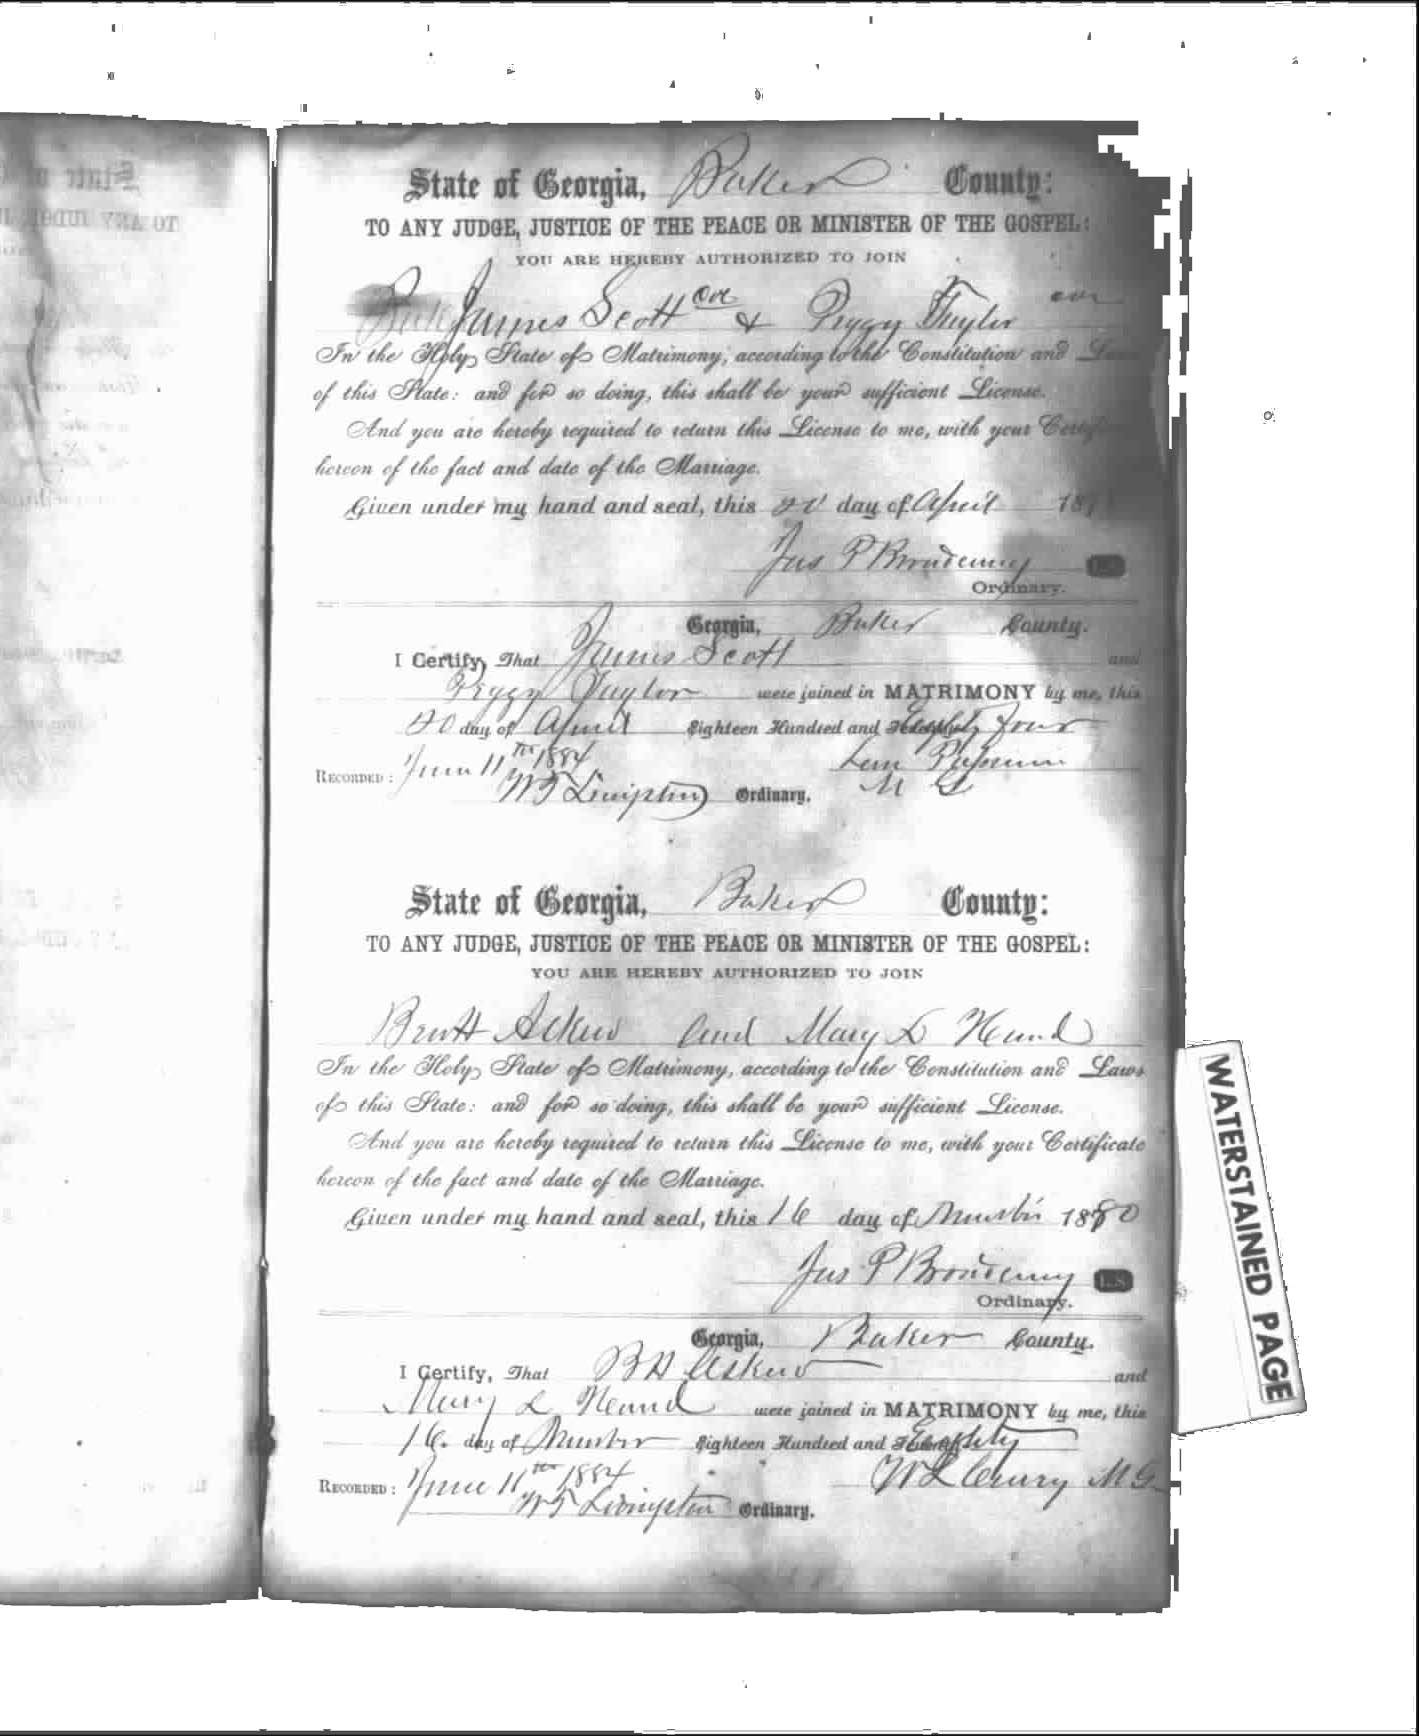 State of Georgia, Baker County:
TO ANY JUDGE, JUSTICE OF THE PEACE OR MINISTER OF THE GOSPEL:
YOU ARE HEREBY AUTHORIZED TO JOIN
James Scott Col & Peggy Taylor Col
In the Holy State of Matrimony, according to the Constitution and Laws
of this State: and for so doing, this shall be your sufficient License.
And you are hereby required to return this License to me, with your Certificate
hereon of the fact and date of the Marriage.
Given under my hand and seal, this day of April 18
Jas P Broadaway L.S.
Ordinary.
Georgia, Baker County.
I Certify, That James Scott and
Peggy Taylor were joined in MATRIMONY by me, this
20 day of April Eighteen Hundred and Eighty four
Lem
RECORDED: June 11th 1884 M G
W T Livingston Ordinary.
State of Georgia, Baker County:
TO ANY JUDGE, JUSTICE OF THE PEACE OR MINISTER OF THE GOSPEL:
YOU ARE HEREBY AUTHORIZED TO JOIN
Askew and Mary L
In the Holy State of Matrimony, according to the Constitution and Laws
of this State: and for so doing, this shall be your sufficient License.
And you are hereby required to return this License to me, with your Certificate
hereon of the fact and date of the Marriage.
Given under my hand and seal, this 16 day of 1880
Jas P Broadaway L.S.
Ordinary.
Georgia, Baker County.
I Certify, That B H Askew and
Mary L were joined in MATRIMONY by me, this
16 day of Eighteen Hundred and Eighty
W L Curry M.G.
RECORDED: June 11th 1884
W T Livingston Ordinary.
WATERSTAINED PAGE